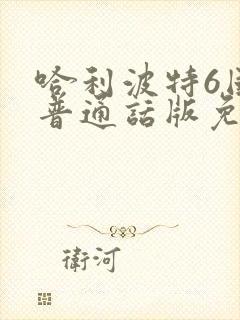 哈利波特6
普通話版免
衛河